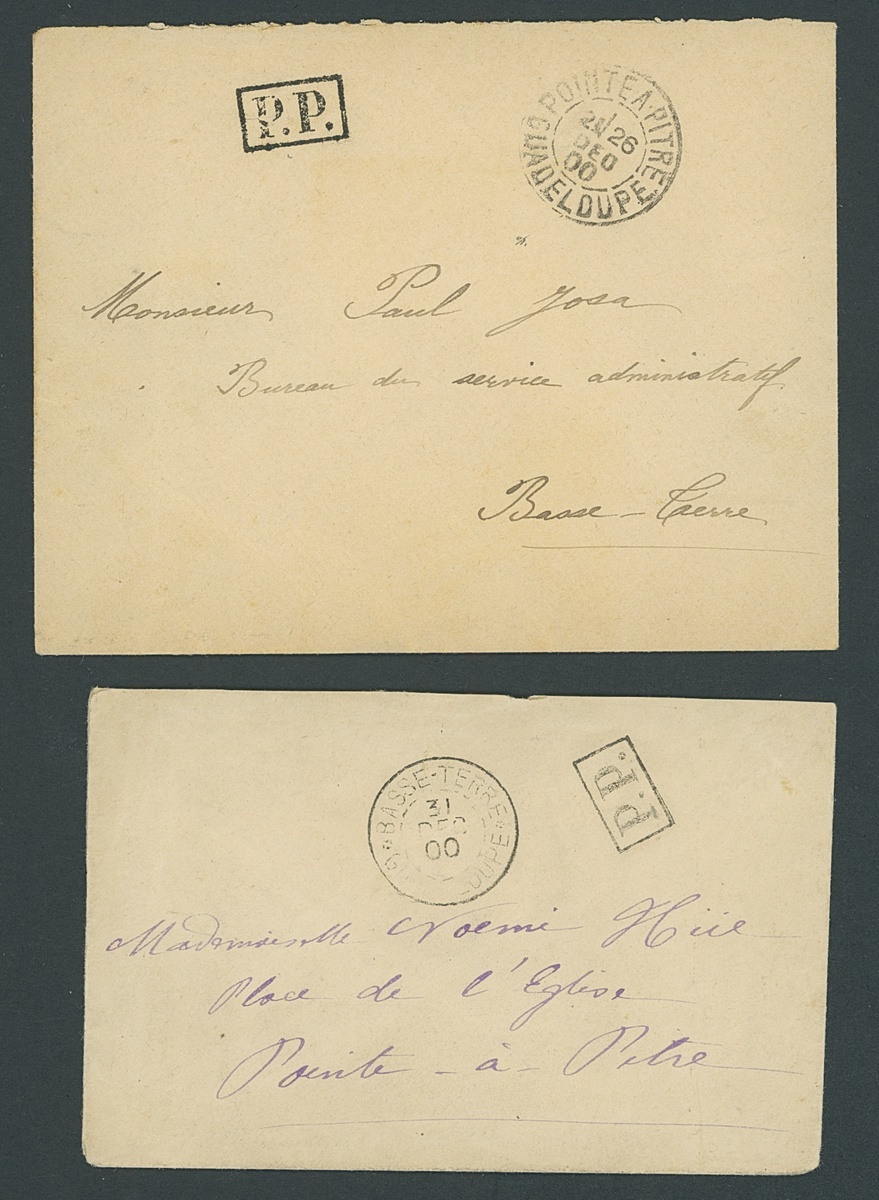 P.P.
POINTE-A-PITRE
26
DEC
00
GUADELOUPE
Monsieur Paul Josa
Bureau du service administratif
Basse-Terre
BASSE-TERRE
31
DEC
00
P.P.
Mademoiselle Noemi
Place de l'Eglise
Pointe-à-Pitre